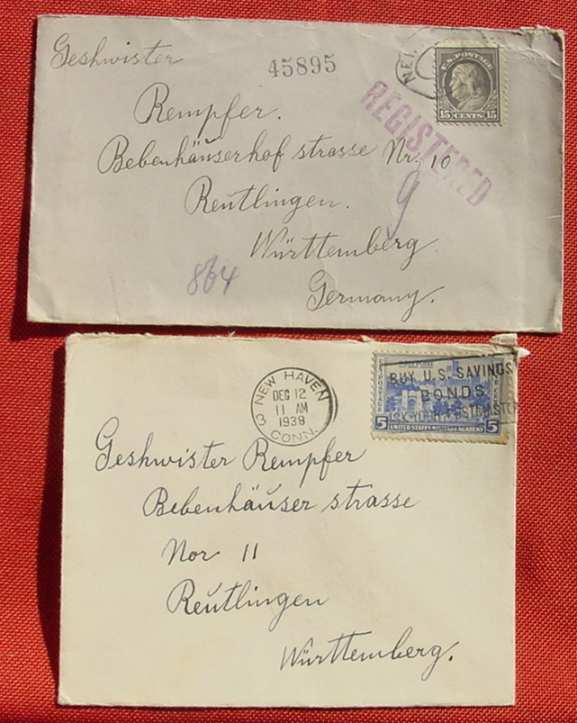 Geshwister
45895
NE
U.S. POSTAGE
15 CENTS 15
REGISTERED
Rempfer.
Bebenhäuserhof strasse Nr. 10
9
Reutlingen.
Württemberg
864
Germany.
NEW HAVEN
DEC 12
11 AM
1938
3 CONN.
BUY U.S. SAVINGS
BONDS
5 UNITED STATES MILITARY ACADEMY 5
Geshwister Rempfer
Bebenhäuser strasse
Nor 11
Reutlingen
Württemberg.